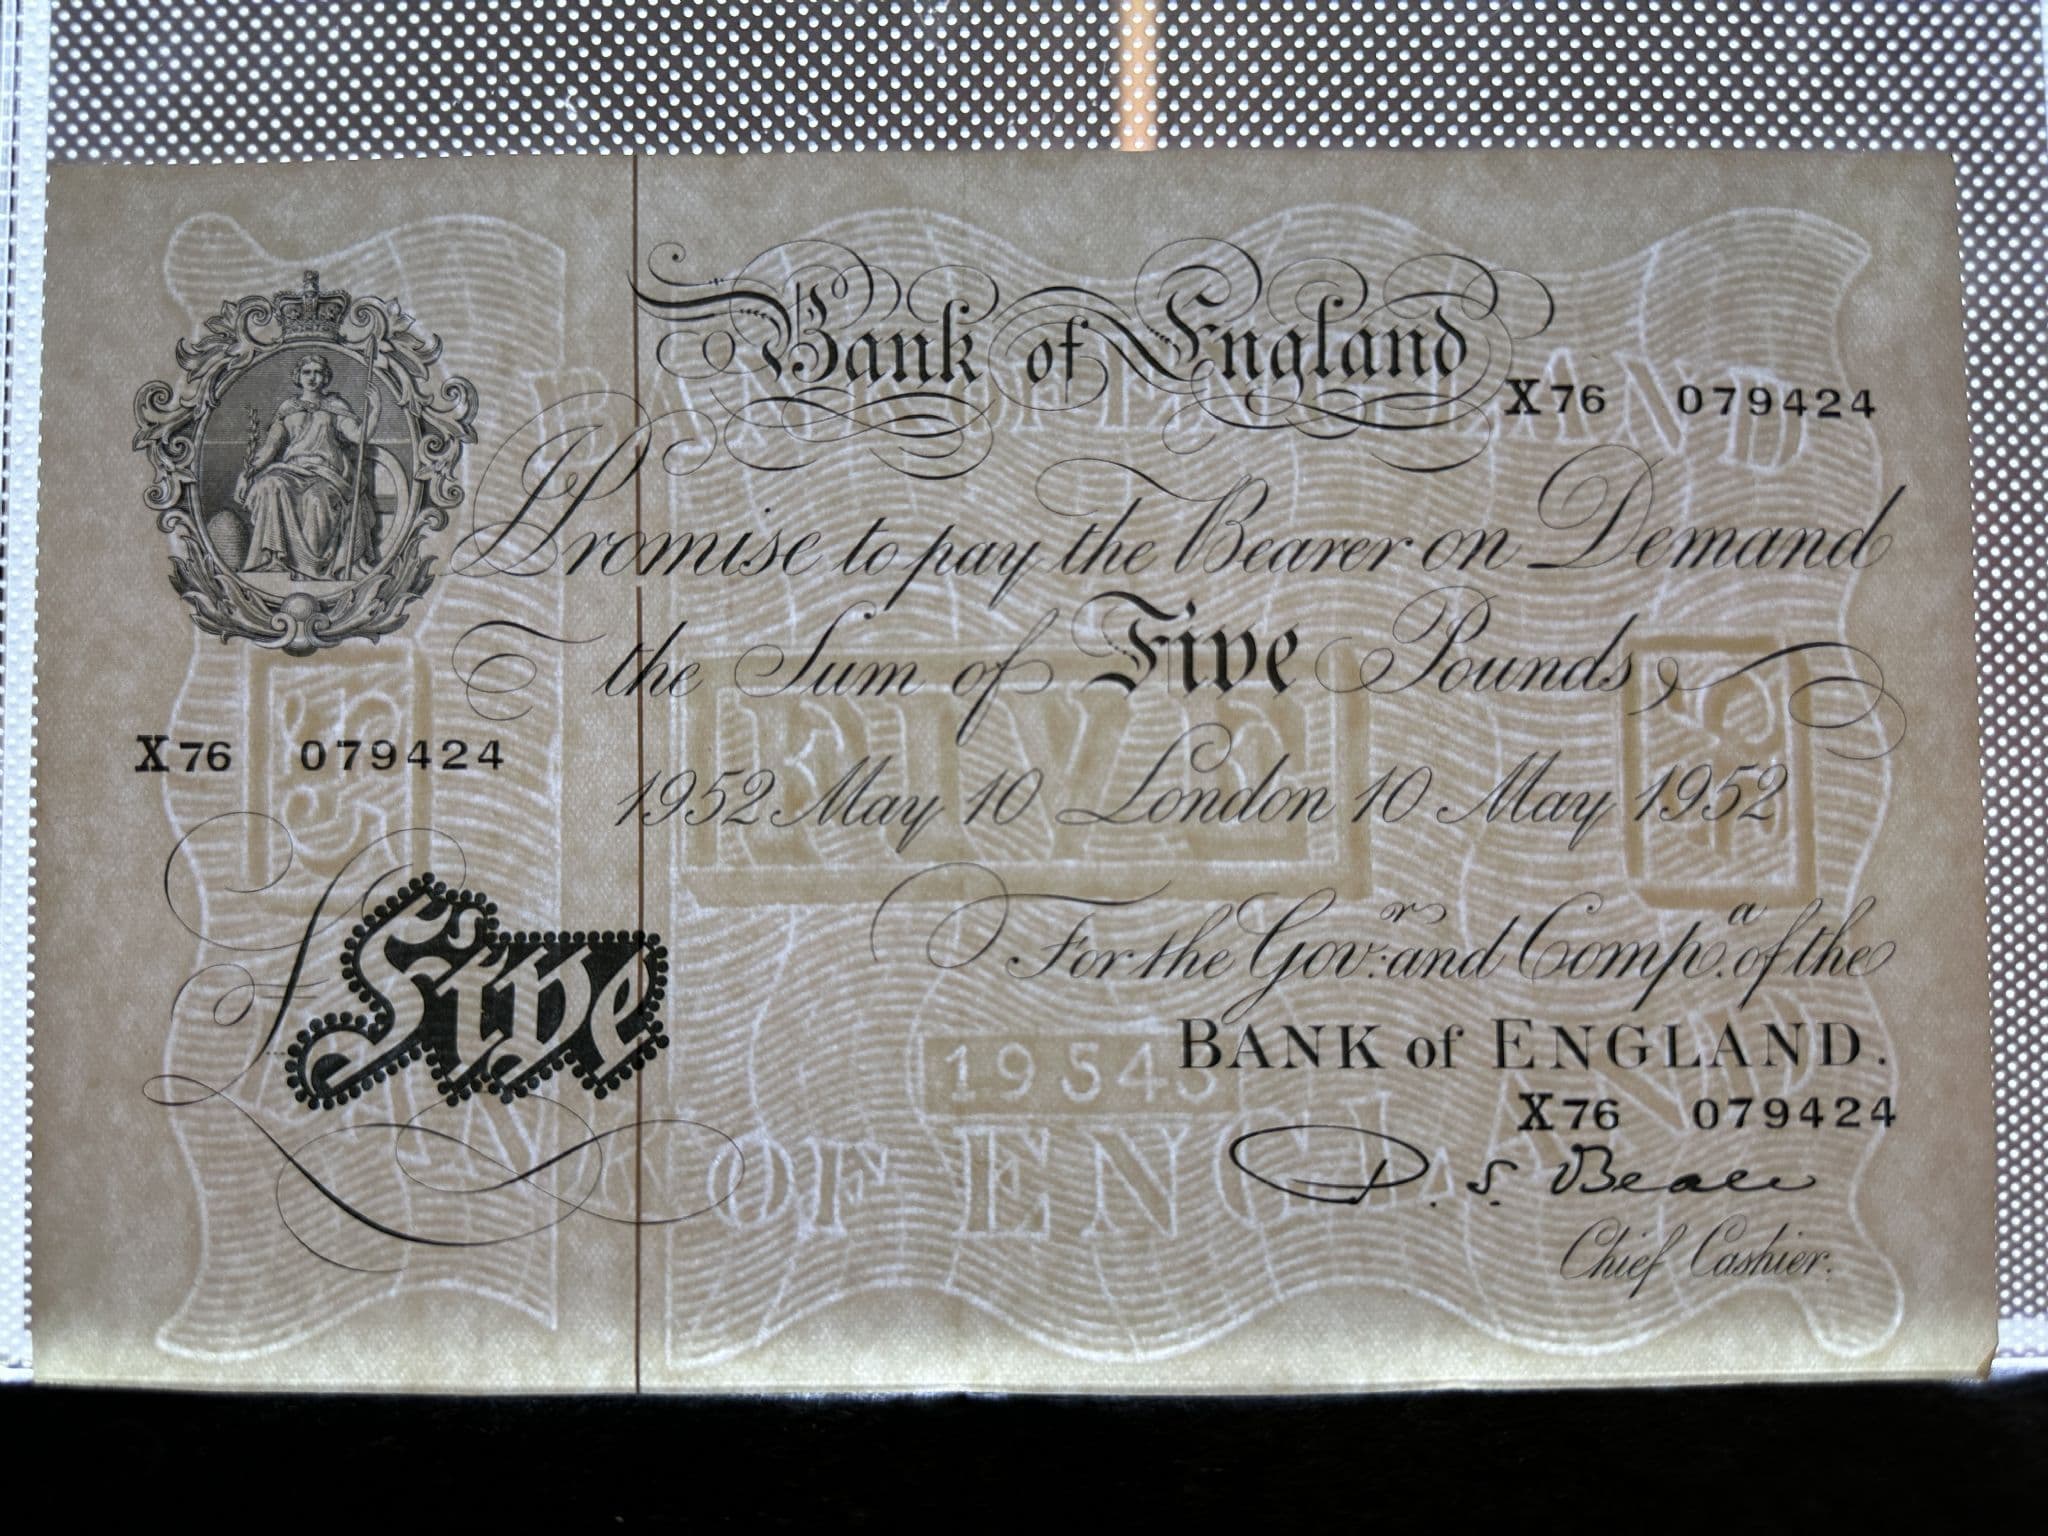 Bank of England
X76 079424
BANK OF ENGLAND
I Promise to pay the Bearer on Demand
the Sum of Five Pounds
X76 079424
FIVE
1952 May 10 London 10 May 1952
Five
For the Gov.r and Comp.a of the
BANK of ENGLAND.
X76 079424
BANK OF ENGLAND
D. S. Beale
Chief Cashier.